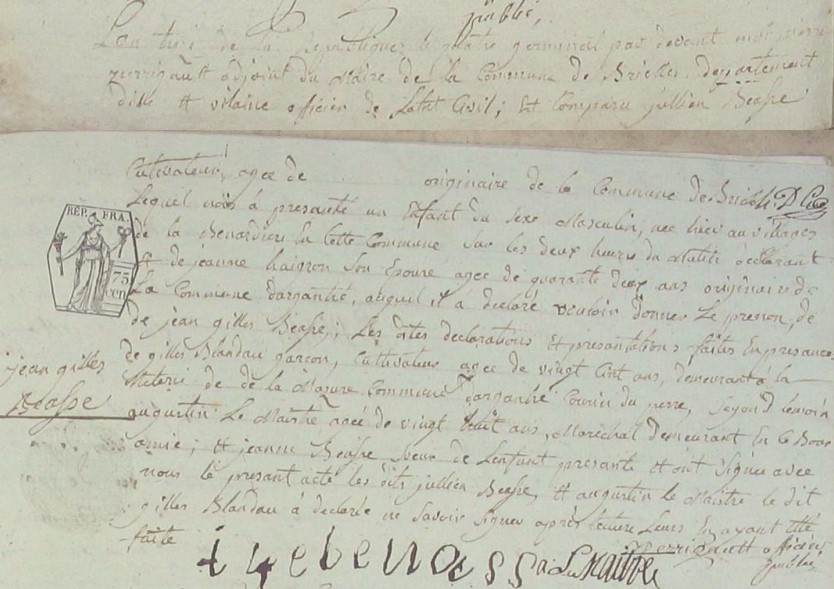 publié,
L'an treis de la Republiques le quatre germinal par devant moi pierre
perrigault adjoint du Maire de la Commune de Brielles departement
dille et vilaine officier de L'etat Civil; Est Comparu jullien Beasse
Cultivateur, agee de originaire de la Commune de Brielles
Lequel nous à presanté un Enfant du sexe Masculin, nee hier au villages
de la Benardiere En Cette Commune sur les deux heures du Matin declarant
et de jeanne haisron Son Epouse agee de quarante deux ans originaire de
La Commune dargantré, auquel il a declaré vouloir donner Le prenom, de
de jean gilles Beasse; Les dites declarations Et presantations faites En presance
de gilles Blandau garcon, Cultivateur agee de vingt Cint ans, demeurant à la
Meterie de de la Mazure Commune dargantré Cousin du perre, Segond temoin
augustin Le Maistre agée de vingt huit ans, Maréchal Demeurant En Ce Bour
amie; et jeanne Beasse Soeur de Lenfant presante et ont Signée avec
nous le presant acte les dits jullien Beasse, et augustin le Maistre le dit
gilles Blandau à declarée ne Savoir Signer après lecture Leurs En ayant Etté
faite
perrigault officier
publié
a Le Maitre
REP. FRA.
75
cen
jean gilles
Beasse